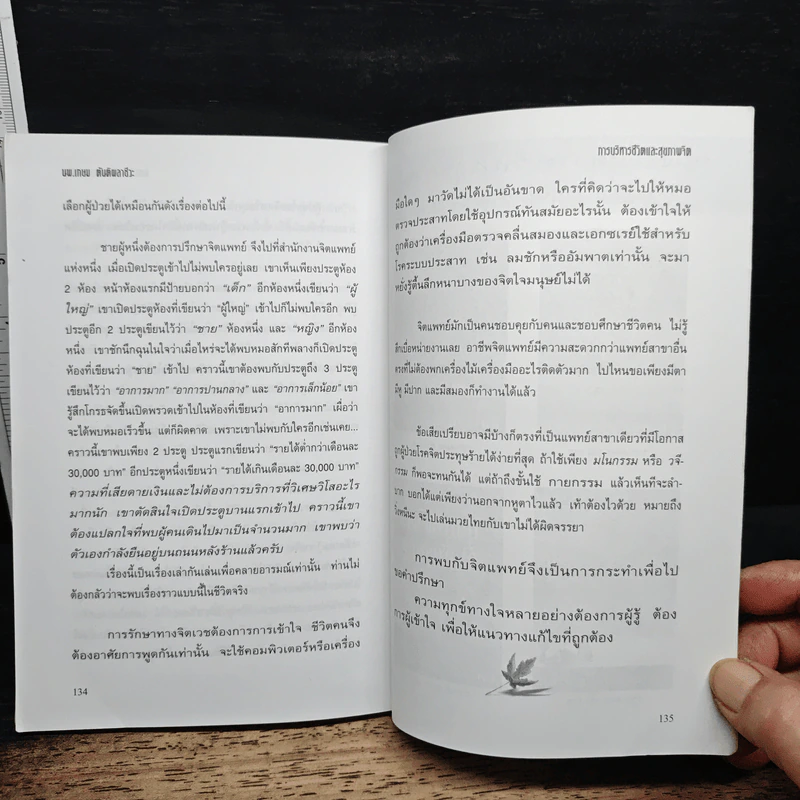 นพ.เกษม ตันติผลาชีวะ
เลือกผู้ป่วยได้เหมือนกันดังเรื่องต่อไปนี้
ชายผู้หนึ่งต้องการปรึกษาจิตแพทย์ จึงไปที่สำนักงานจิตแพทย์
แห่งหนึ่ง เมื่อเปิดประตูเข้าไปไม่พบใครอยู่เลย เขาเห็นเพียงประตูห้อง
2 ห้อง หน้าห้องแรกมีป้ายบอกว่า “เด็ก” อีกห้องหนึ่งเขียนว่า “ผู้
ใหญ่” เขาเปิดประตูห้องที่เขียนว่า “ผู้ใหญ่” เข้าไปก็ไม่พบใครอีก พบ
ประตูอีก 2 ประตูเขียนไว้ว่า “ชาย” ห้องหนึ่ง และ “หญิง” อีกห้อง
หนึ่ง เขาชักนึกฉุนในใจว่าเมื่อไหร่จะได้พบหมอสักทีพลางก็เปิดประตู
ห้องที่เขียนว่า “ชาย” เข้าไป คราวนี้เขาต้องพบกับประตูถึง 3 ประตู
เขียนไว้ว่า “อาการมาก” “อาการปานกลาง” และ “อาการเล็กน้อย” เขา
รู้สึกโกรธจัดขึ้นเปิดพรวดเข้าไปในห้องที่เขียนว่า “อาการมาก” เผื่อว่า
จะได้พบหมอเร็วขึ้น แต่ก็ผิดคาด เพราะเขาไม่พบกับใครอีกเช่นเคย...
คราวนี้เขาพบเพียง 2 ประตู ประตูแรกเขียนว่า “รายได้ต่ำกว่าเดือนละ
30,000 บาท” อีกประตูหนึ่งเขียนว่า “รายได้เกินเดือนละ 30,000 บาท”
ความที่เสียดายเงินและไม่ต้องการบริการที่วิเศษวิโสอะไร
มากนัก เขาตัดสินใจเปิดประตูบานแรกเข้าไป คราวนี้เขา
ต้องแปลกใจที่พบผู้คนเดินไปมาเป็นจำนวนมาก เขาพบว่า
ตัวเองกำลังยืนอยู่บนถนนหลังร้านแล้วครับ
เรื่องนี้เป็นเรื่องเล่ากันเล่นเพื่อคลายอารมณ์เท่านั้น ท่านไม่
ต้องกลัวว่าจะพบเรื่องราวแบบนี้ในชีวิตจริง
การรักษาทางจิตเวชต้องการการเข้าใจ ชีวิตคนจึง
ต้องอาศัยการพูดกันเท่านั้น จะใช้คอมพิวเตอร์หรือเครื่อง
134
การบริหารชีวิตและสุขภาพจิต
มือใดๆ มาวัดไม่ได้เป็นอันขาด ใครที่คิดว่าจะไปให้หมอ
ตรวจประสาทโดยใช้อุปกรณ์ทันสมัยอะไรนั้น ต้องเข้าใจให้
ถูกต้องว่าเครื่องมือตรวจคลื่นสมองและเอกซเรย์ใช้สำหรับ
โรคระบบประสาท เช่น ลมชักหรืออัมพาตเท่านั้น จะมา
หยั่งรู้ตื้นลึกหนาบางของจิตใจมนุษย์ไม่ได้
จิตแพทย์มักเป็นคนชอบคุยกับคนและชอบศึกษาชีวิตคน ไม่รู้
สึกเบื่อหน่ายงานเลย อาชีพจิตแพทย์มีความสะดวกกว่าแพทย์สาขาอื่น
ตรงที่ไม่ต้องพกเครื่องไม้เครื่องมืออะไรติดตัวมาก ไปไหนขอเพียงมีตา
มีหู มีปาก และมีสมองก็ทำงานได้แล้ว
ข้อเสียเปรียบอาจมีบ้างก็ตรงที่เป็นแพทย์สาขาเดียวที่มีโอกาส
ถูกผู้ป่วยโรคจิตประทุษร้ายได้ง่ายที่สุด ถ้าใช้เพียง มโนกรรม หรือ วจี
กรรม ก็พอจะทนกันได้ แต่ถ้าถึงขั้นใช้ กายกรรม แล้วเห็นทีจะลำ-
บาก บอกได้แต่เพียงว่านอกจากหูตาไวแล้ว เท้าต้องไวด้วย หมายถึง
วิ่งหนีนะ จะไปเล่นมวยไทยกับเขาไม่ได้ผิดจรรยา
การพบกับจิตแพทย์จึงเป็นการกระทำเพื่อไป
ขอคำปรึกษา
ความทุกข์ทางใจหลายอย่างต้องการผู้รู้ ต้อง
การผู้เข้าใจ เพื่อให้แนวทางแก้ไขที่ถูกต้อง
135